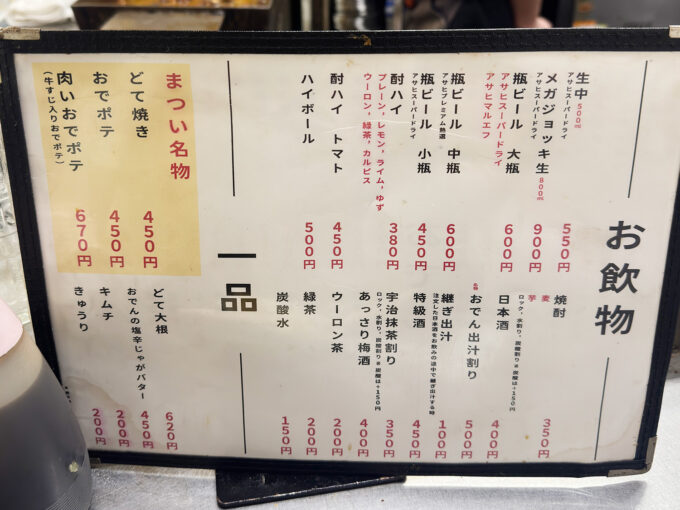 お飲物
生中 500ml
アサヒスーパードライ
550円
メガジョッキ生 800ml
アサヒスーパードライ
900円
瓶ビール 大瓶
アサヒスーパードライ
アサヒマルエフ
600円
瓶ビール 中瓶
アサヒプレミアム熟選
600円
瓶ビール 小瓶
アサヒスーパードライ
450円
酎ハイ
プレーン，レモン，ライム，ゆず
ウーロン，緑茶，カルピス
380円
酎ハイ トマト
450円
ハイボール
500円
焼酎
麦
芋
ロック，水割り，炭酸割り※炭酸は＋150円
350円
日本酒
400円
おでん出汁割り
500円
継ぎ出汁
注文した日本酒をお飲みの途中で継ぎ出汁する時
100円
特級酒
450円
宇治抹茶割り
350円
あっさり梅酒
ロック，水割り，炭酸割り※炭酸は＋150円
400円
ウーロン茶
200円
緑茶
200円
炭酸水
150円
一品
まつい名物
どて焼き
450円
おでポテ
450円
肉いおでポテ
（牛すじ入りおでポテ）
670円
どて大根
620円
おでんの塩辛じゃがバター
450円
キムチ
200円
きゅうり
200円